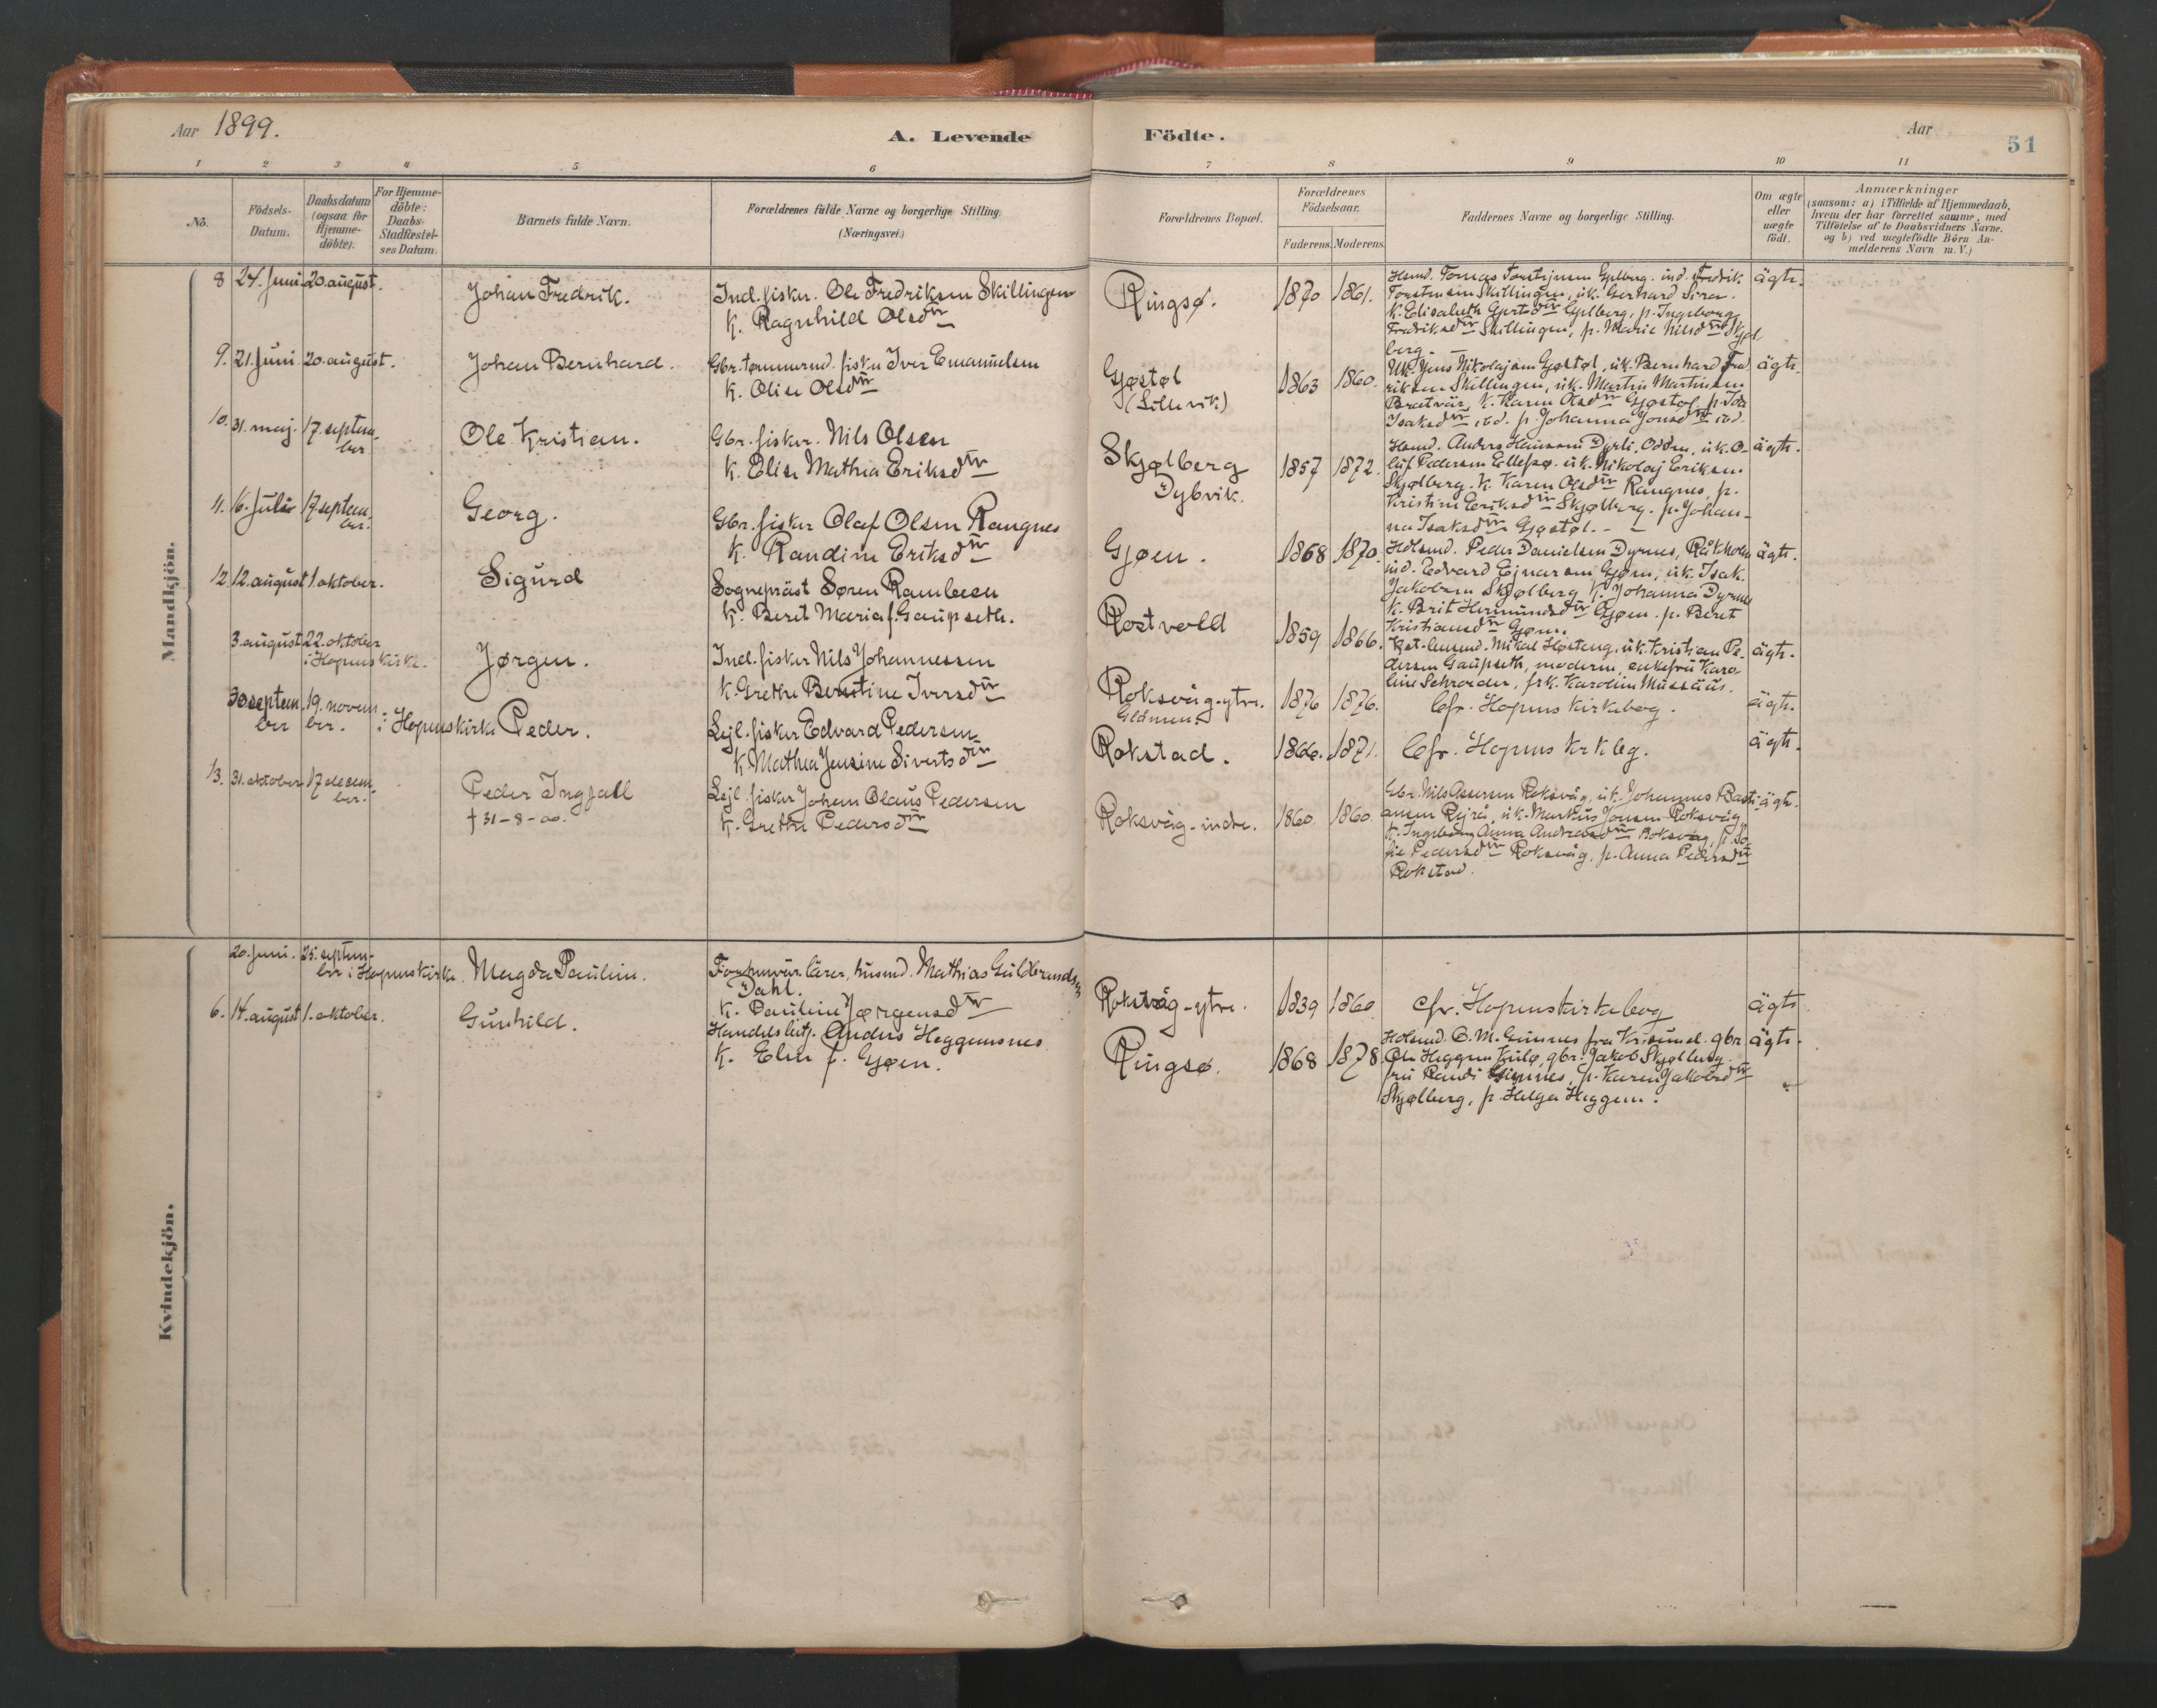 Aar 1899.
A. Levende
Födte.
Aar
51
1 2 3 4 5 6 7 8 9 10 11
No.
Födsels-Datum.
Daabsdatum (ogsaa for Hjemme-döbte).
For Hjemme-döbte: Daabs-Stadfæstel-ses Datum.
Barnets fulde Navn.
Forældrenes fulde Navne og borgerlige Stilling. (Næringsvei.)
Forældrenes Bopæl.
Forældrenes Födselsaar.
Faderens. Moderens.
Faddernes Navne og borgerlige Stilling.
Om ægte eller uægte födt.
Anmærkninger
(saasom: a) i Tilfælde af Hjemmedaab,
hvem der har forrettet samme, med
Tilföielse af to Daabsvidners Navne,
og b) ved uægtefödte Börn An-
melderens Navn m. V.)
Mandkjön.
8 24. juni 20. august. Johan Fredrik.
Ind. fisker. Ole Fredriksen Skillingen
K. Ragnhild Olsdtr
Ringsø. 1870 1861.
Torstensen Skillingen, uk. Gerhard
Fredriksdtr Skillingen, p. Marie Nilsdtr Skjøl
berg.
ägte.
9. 21. juni 20. august. Johan Bernhard.
Gbr. tømmermd. fisker Iver Emanuelsen
K. Olise Olsdtr
Gjøstøl
(Lillevik)
1863 1860.
Uk. Jens Nikolajsen Gjøstøl, uk. Bernhard Fred
riksen Skillingen, uk. Martin Martinsen
Bratvär, K. Karen Olsdtr Gjøstøl. p. Ida
Isaksdtr ibd. p. Johanna Jonsdtr ibd.
ägte.
10. 31. maj. 17. septem
ber
Ole Kristian.
Gbr. fisker. Nils Olsen
K. Elise Mathea Eriksdtr
Skjølberg
Dybvik.
1857 1872.
Husmd. Anders Hansen Dyrli, Odden, uk. O-
luf Pedersen Ellefsø. uk. Nikolaj Eriksen
Skjølberg. K. Karen Olsdtr Rangnes, p.
Kristine Eriksdtr Skjølberg. p. Johan-
na Isaksdtr Gjøstøl.
ägte.
11. 16. juli 17. septem
ber.
Georg.
Gbr. fisker Olaf Olsen Rangnes
K. Randine Eriksdtr
Gjøen. 1868 1870.
Peder Danielsen Dyrnes, Råkholm
ind. Edvard Ejnarsen Gjøen, uk. Isak
Jakobsen Skjølberg K. Johanna Dyrnes
K. Brit Hermundsdtr Gjøen. p. Beret
Kristiansdtr Gjøen.
ägte.
12. 12. august 1. oktober.
Sigurd
Sognepräst Søren
K. Beret Maria f. Gaupseth.
Rostvold 1859 1866.
Mikal Høsteng, uk. Kristian Pe-
dersen Gaupseth, moderen, enkefru Karo
line Schrøder, frk. Karoline Mussäus.
ägte.
3. august 22. oktober
i Hopens kirke.
Jørgen.
Ind. fisker Nils Johannessen
K. Grethe Berntine Iversdtr
Roksvåg-ytre.
Glåmen.
1876 1876.
Cfr. Hopens kirkebog.
ägte.
30 septem
ber
19. novem
ber.
i Hopens kirke Peder.
Lejl. fisker Edvard Pedersen
K. Mathea Jensine Sivertsdtr
Rokstad. 1866. 1871.
Cfr. Hopens krkbg.
ägte.
13. 31. oktober 17 decem
ber.
Peder Ingjall
† 31-8-00.
Lejl. fisker Johan Olaus Pedersen
K. Grethe Pedersdtr
Roksvåg-indre. 1860. 1860
Gbr. Nils Assersen Roksvåg, uk. Johannes Basti
ansen Rejrå, uk. Markus Jonsen Roksvåg
K. Ingeborg Anna Andreasdtr Roksvåg, p. So
fie Pedersdtr Roksvåg, p. Anna Pedersdtr
Rokstad.
ägte.
Kvindekjön.
20. juni. 25. septem-
ber i Hopens kirke.
Magda Pauline.
Forhenvär. lärer, husmd. Mathias Guldbrandsen
Dahl.
K. Pauline Jørgensdtr
Roksvåg-ytre. 1839 1860
cfr. Hopens kirkebog
ägte
6. 14. august 1. oktober.
Gunhild.
Handelsbetj. Anders Heggemsnes
K. Elen f. Gjøen.
Ringsø. 1868 1878
O. M. Gimnes fra Krisund. gbr
Ole Heggem Kulø, gbr. Jakob Skjølberg.
fru Randi Gimnes, p. Karen Jakobsdtr
Skjølberg, p. Helga Heggem.
ägte.